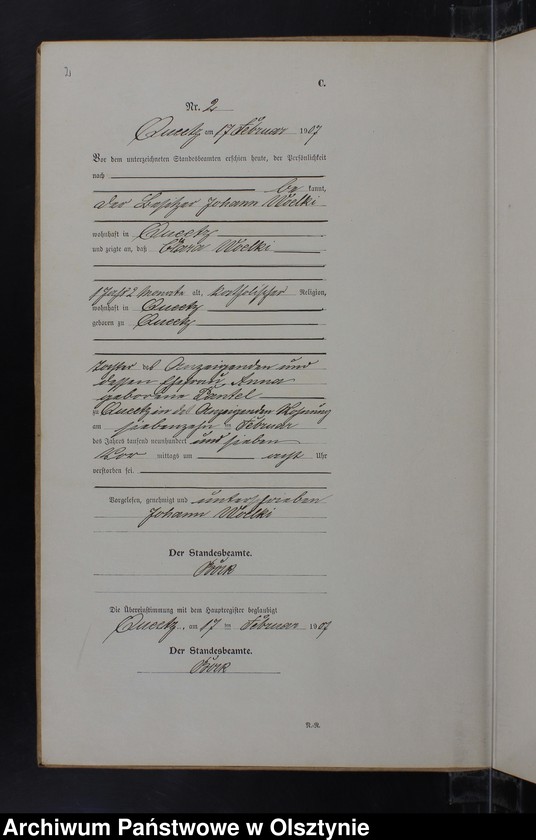 C.
Nr. 2
Queetz am 17 Februar 1907
Vor dem unterzeichneten Standesbeamten erschien heute, der Persönlichkeit
nach
be kannt,
der Besitzer Johann Woelki
wohnhaft in Queetz
und zeigte an, daß Clara Woelki
1 Jahr 2 Monate alt, katholischer Religion,
wohnhaft in Queetz
geboren zu Queetz
Tochter des Anzeigenden und
dessen Ehefrau Anna
geborene
zu Queetz in des Anzeigenden Wohnung
am siebenzehn ten Februar
des Jahrs tausend neunhundert und sieben
Vor mittags um acht Uhr
verstorben sei.
Vorgelesen, genehmigt und unterschrieben
Johann Woelki
Der Standesbeamte.
Die Übereinstimmung mit dem Hauptregister beglaubigt
Queetz, am 17 ten Februar 1907
Der Standesbeamte.
N.-R.
Archiwum Państwowe w Olsztynie